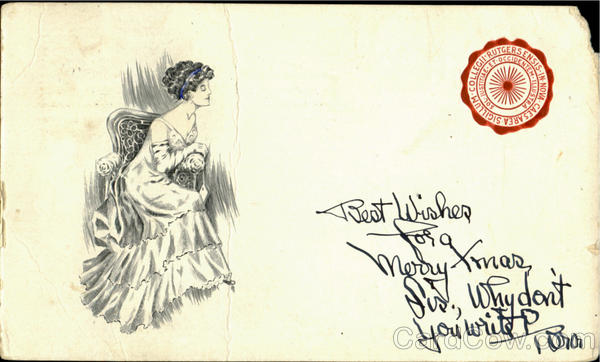 SIGILLUM · COLLEGII · RUTGERSENSIS · IN · NOVA · CAESAREA
SOL · IUSTITIAE · ET · OCCIDENTEM · ILLUSTRA
Best Wishes
for a
Merry Xmas,
Sis., Why don't
you write?
Bro.
CardCow.com